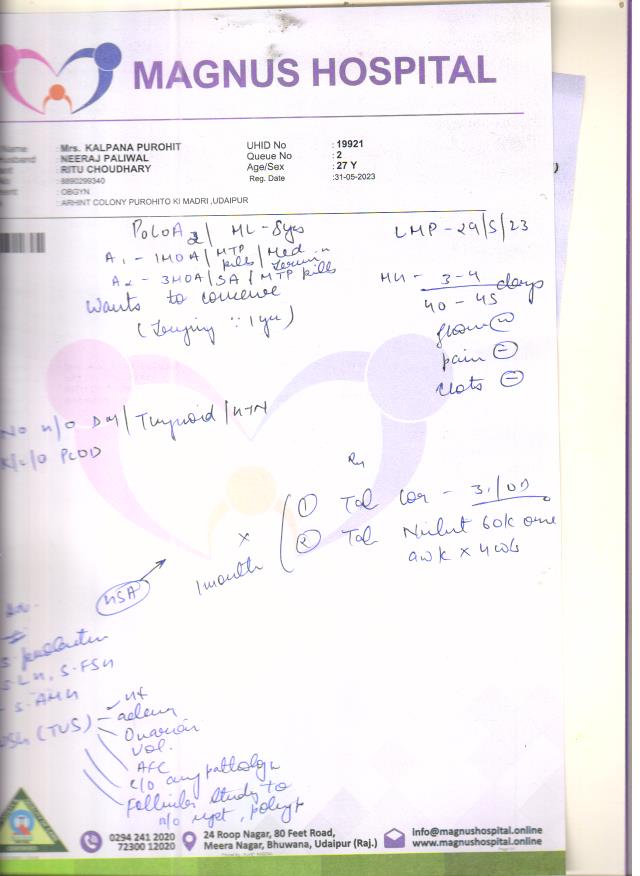 MAGNUS HOSPITAL
Name : Mrs. KALPANA PUROHIT
usband : NEERAJ PALIWAL
ant : RITU CHOUDHARY
No : 8890299340
ment : OBGYN
s : ARHINT COLONY PUROHITO KI MADRI ,UDAIPUR
UHID No : 19921
Queue No : 2
Age/Sex : 27 Y
Reg. Date :31-05-2023
P0L0A2 / ML - 8yrs
A1 - 1MOA / MTP pills / Med
A2 - 3MOA / SA / MTP pills
Wants to conceive
1 yr)
LMP - 29/5/23
MH - 3-4 days
40 - 45
flow N
pain -
clots -
No H/O DM / Thyroid / HTN
K/C/O PCOD
Rx
① Tab - 3./OD
② Tab 60K one
a wk x 4 wks
x
1 month
HSA
S. prolactin
S. LH, S. FSH
- S. AMH
(TUS) - ut
adenx
Ovarian
Vol.
AFC
any pathology
Follicular Study to
0294 241 2020
72300 12020
24 Roop Nagar, 80 Feet Road,
Meera Nagar, Bhuwana, Udaipur (Raj.)
info@magnushospital.online
www.magnushospital.online